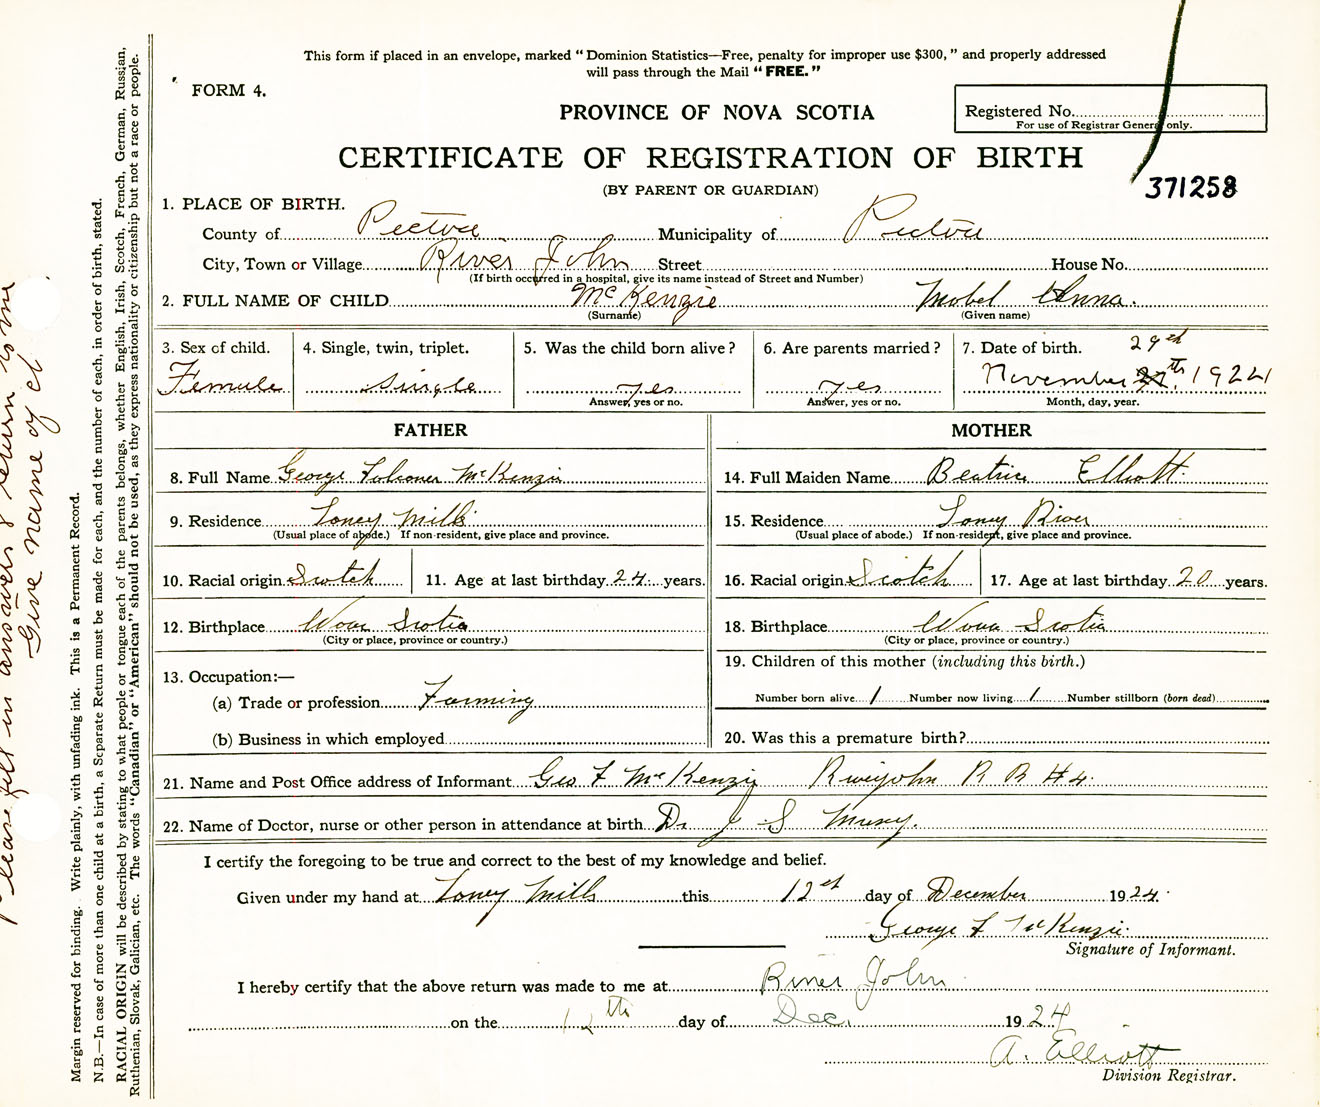 This form if placed in an envelope, marked "Dominion Statistics—Free, penalty for improper use $300," and properly addressed
will pass through the Mail "FREE."
FORM 4.
PROVINCE OF NOVA SCOTIA
Registered No.
For use of Registrar General only.
CERTIFICATE OF REGISTRATION OF BIRTH
(BY PARENT OR GUARDIAN)
371258
1. PLACE OF BIRTH.
County of Pictou Municipality of Pictou
City, Town or Village River John Street House No.
(If birth occurred in a hospital, give its name instead of Street and Number)
2. FULL NAME OF CHILD McKenzie Mabel Anna.
(Surname) (Given name)
3. Sex of child. 4. Single, twin, triplet. 5. Was the child born alive? 6. Are parents married? 7. Date of birth. 29th
Female Single yes yes November 1924
Answer, yes or no. Answer, yes or no. Month, day, year.
FATHER MOTHER
8. Full Name George Falconer McKenzie 14. Full Maiden Name Beatrice Elliott
9. Residence Toney Mills 15. Residence Toney River
(Usual place of abode.) If non-resident, give place and province. (Usual place of abode.) If non-resident, give place and province.
10. Racial origin Scotch 11. Age at last birthday 24 years. 16. Racial origin Scotch 17. Age at last birthday 20 years.
12. Birthplace Nova Scotia 18. Birthplace Nova Scotia
(City or place, province or country.) (City or place, province or country.)
13. Occupation:— 19. Children of this mother (including this birth.)
(a) Trade or profession Farming Number born alive 1 Number now living 1 Number stillborn (born dead)
(b) Business in which employed 20. Was this a premature birth?
21. Name and Post Office address of Informant Geo F McKenzie Riverjohn R R #4
22. Name of Doctor, nurse or other person in attendance at birth Dr J S
I certify the foregoing to be true and correct to the best of my knowledge and belief.
Given under my hand at Toney Mills this 12th day of December 1924.
George F McKenzie
Signature of Informant.
I hereby certify that the above return was made to me at River John
on the 12th day of Dec. 1924
A. Elliott
Division Registrar.
Margin reserved for binding. Write plainly, with unfading ink. This is a Permanent Record.
N.B.—In case of more than one child at a birth, a Separate Return must be made for each, and the number of each, in order of birth, stated.
RACIAL ORIGIN will be described by stating to what people or tongue each of the parents belongs, whether English, Irish, Scotch, French, German, Russian,
Ruthenian, Slovak, Galician, etc. The words "Canadian" or "American" should not be used, as they express nationality or citizenship but not a race or people.
Please fill in answers & return to me
Give name of